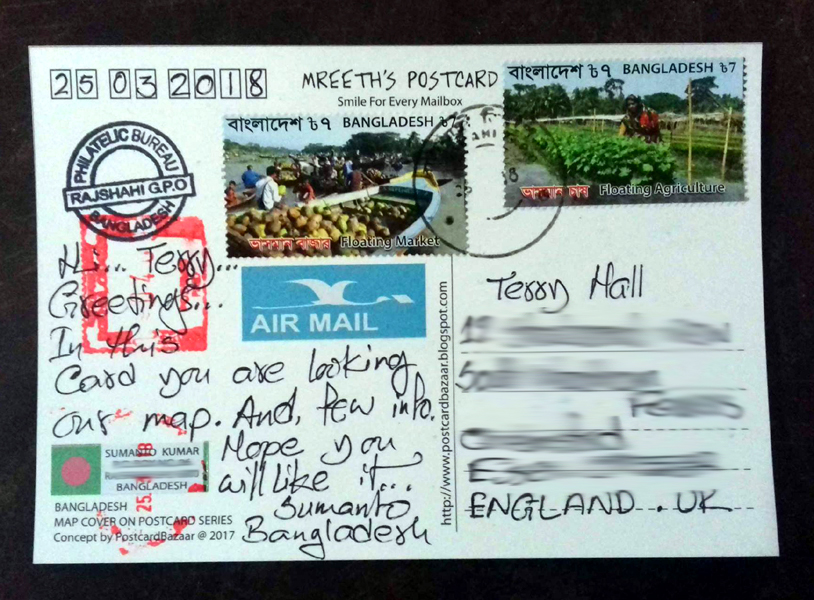 25 03 2018
MREETH'S POSTCARD
Smile For Every Mailbox
বাংলাদেশ ৳৭ BANGLADESH ৳7
ভাসমান চাষ Floating Agriculture
বাংলাদেশ ৳৭ BANGLADESH ৳7
ভাসমান বাজার Floating Market
PHILATELIC BUREAU
RAJSHAHI G.P.O
BANGLADESH
AIR MAIL
Hi... Terry...
Greetings...
In this
Card you are looking
our map. And, few info.
Hope you
will like it...
Sumanto
Bangladesh
SUMANTO KUMAR
BANGLADESH
BANGLADESH
MAP COVER ON POSTCARD SERIES
Concept by PostcardBazaar @ 2017
http://www.postcardbazaar.blogspot.com
Terry Hall
ENGLAND. UK